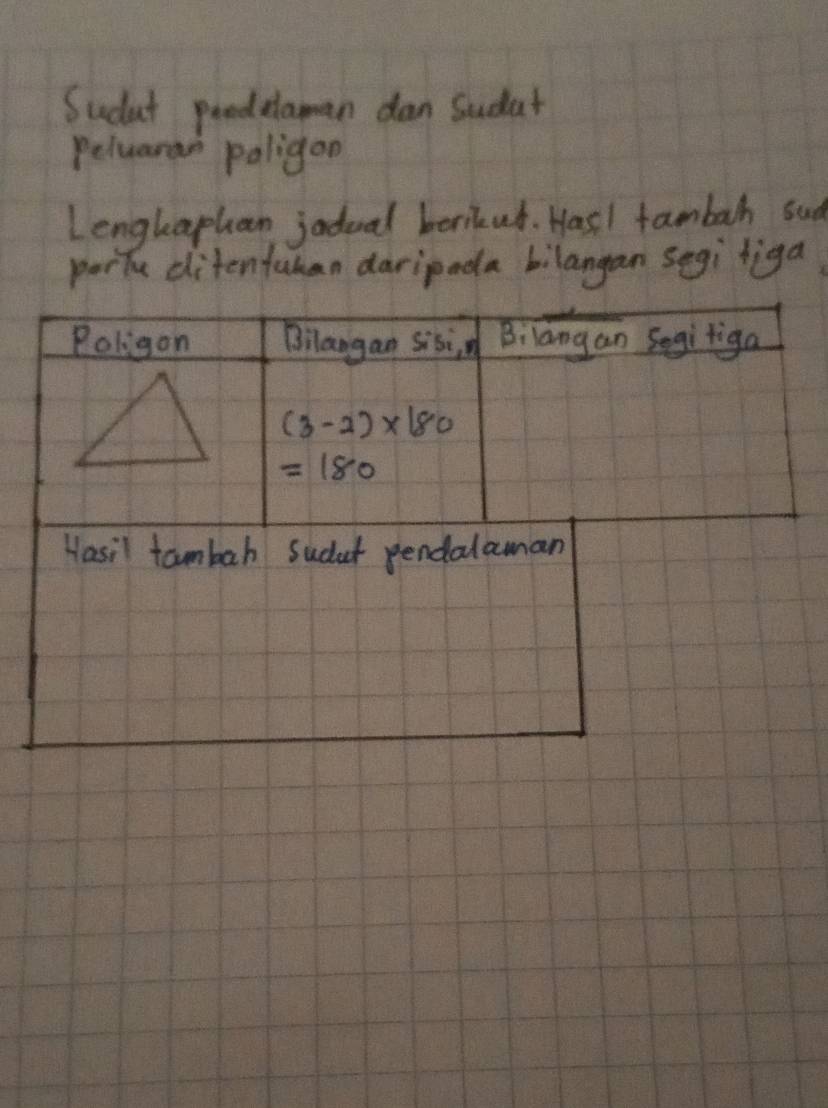 Sudut pendalaman dan sudut
peluaran poligon
Lengkapkan jadual berikut. Hasl tambah sud
perlu ditentukan daripada bilangan segi tiga
Poligon
Bilangan sisi, n
Bilangan segi tiga
(3-2) × 180
= 180
Hasil tambah sudut pendalaman